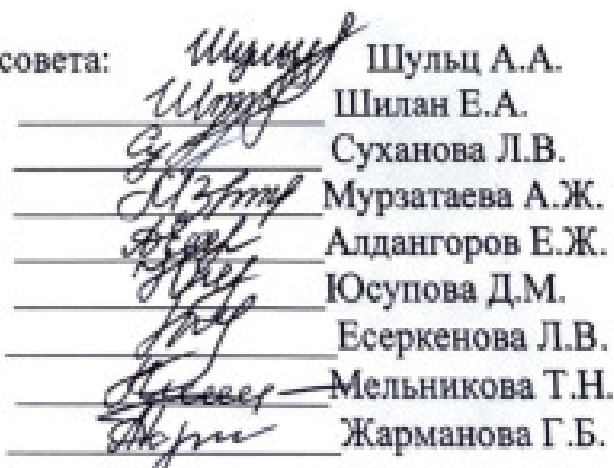 совета: Шульц А.А.
Шилан Е.А.
Суханова Л.В.
Мурзатаева А.Ж.
Алдангоров Е.Ж.
Юсупова Д.М.
Есеркенова Л.В.
Мельникова Т.Н.
Жарманова Г.Б.